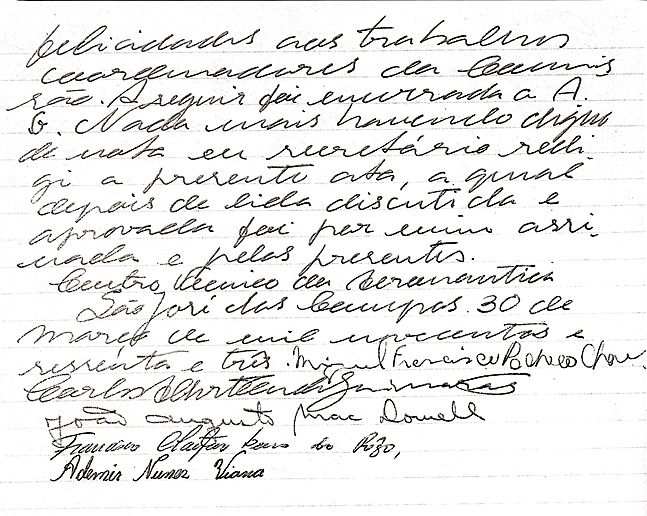 felicidades aos trabalhos
coordenadores da Comis
são. A seguir foi encerrada a A.
G. Nada mais havendo digno
de nota eu secretário redi-
gi a presente ata, a qual
depois de lida discutida e
aprovada foi por mim assi-
nada e pelos presentes.
Centro Técnico da Aeronáutica
São José dos Campos. 30 de
março de mil novecentos e
sessenta e três. Miguel Francisco Pacheco Chaves
Carlos Guimarães
João Augusto Mac Dowell
Francisco do
Ademir Nunes Viana